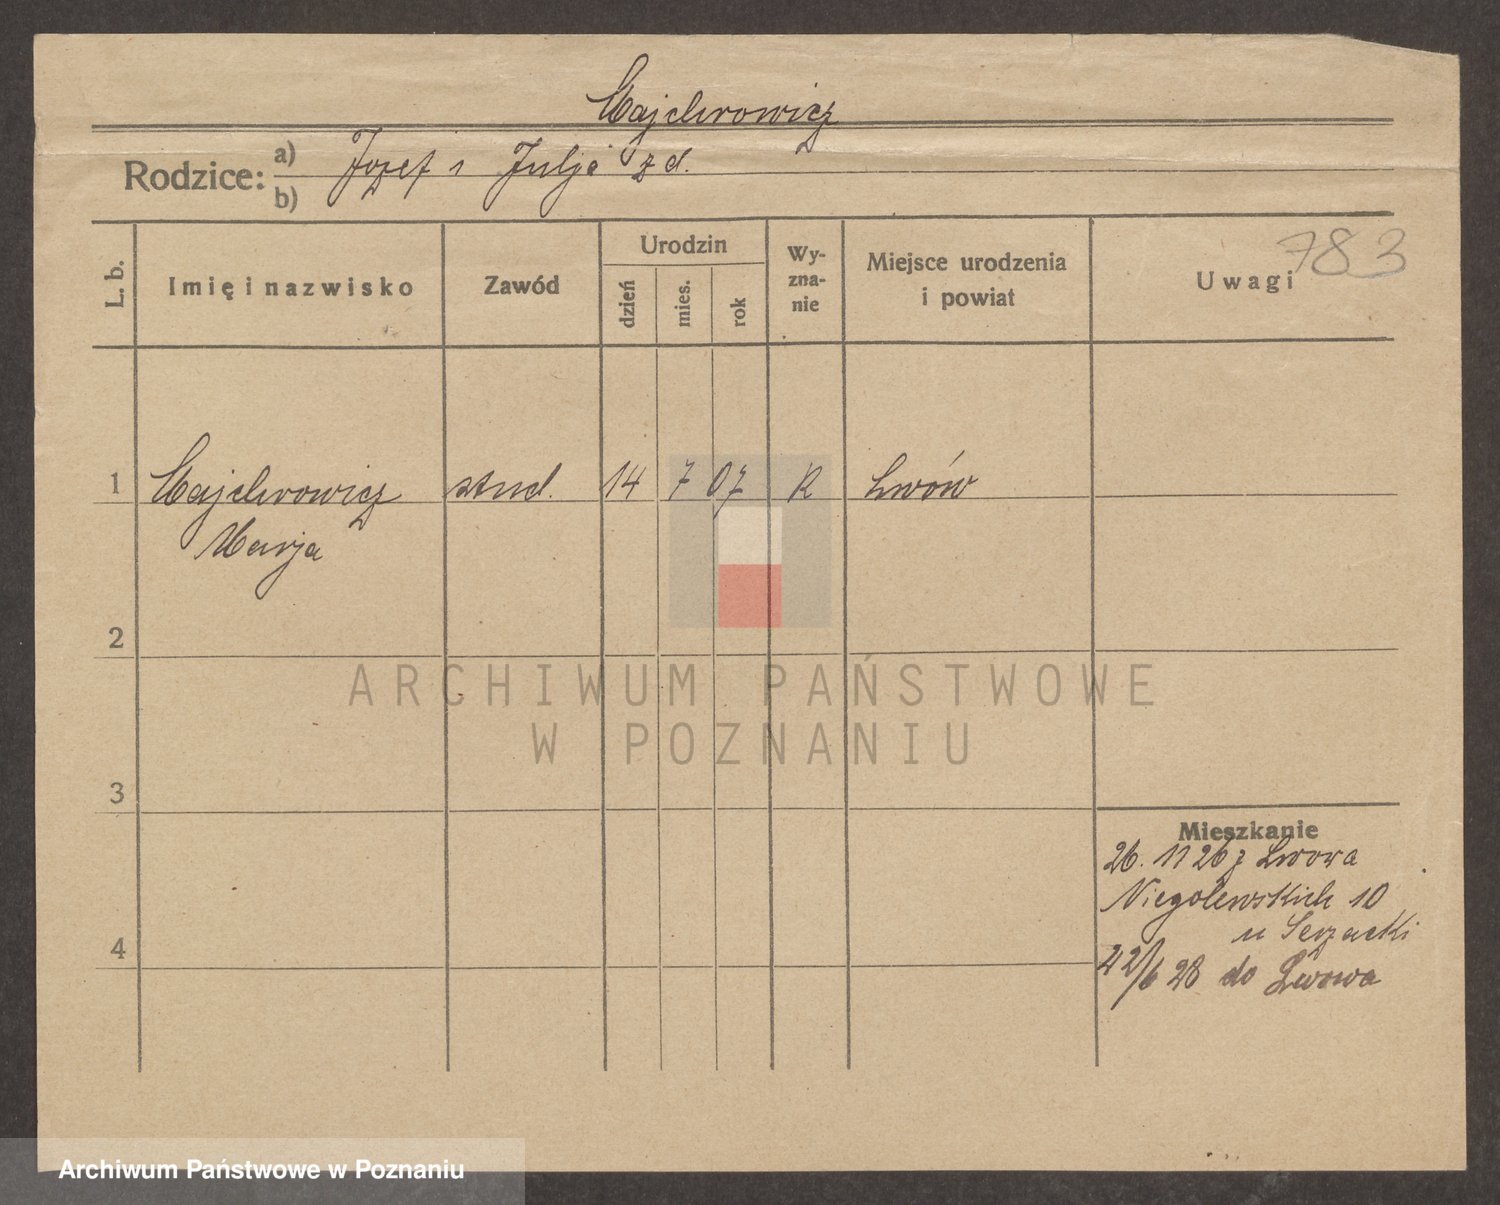 Majchrowicz
Rodzice: a) Józef i Julja zd.
b)
L. b. Imię i nazwisko Zawód Urodzin dzień mies. rok Wy-zna-nie Miejsce urodzenia i powiat Uwagi 783
1 Majchrowicz stud. 14 7 07 R Lwów
Marja
2
3
4
Mieszkanie
26. 11 26 z Lwowa
Niegolewskich 10
u
22/6 28 do Lwowa
ARCHIWUM PAŃSTWOWE
W POZNANIU
Archiwum Państwowe w Poznaniu